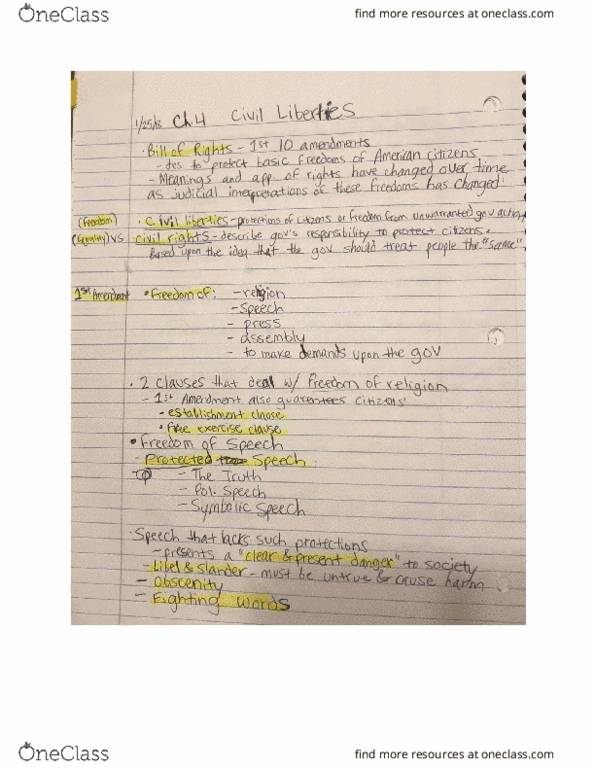 OneClass
find more resources at oneclass.com
1/25/18 Ch.4 Civil Liberties
· Bill of Rights - 1st 10 amendments
- des to protect basic freedoms of American citizens
- Meanings and app. of rights have changed over time
as judicial interpretations of these freedoms has changed.
(Freedom) · Civil liberties - protections of citizens or freedom from unwarranted gov action
(Equality) VS civil rights - describe gov's responsibility to protect citizens.
Based upon the idea that the gov should treat people the "same".
1st Amendment • Freedom of: - religion
- Speech
- press
- assembly
- to make demands upon the gov
· 2 clauses that deal w/ freedom of religion
- 1st Amendment also guarantees citizens'
• establishment clause
• free exercise clause
• Freedom of Speech
- Protected Speech
- The Truth
- Pol. Speech
- Symbolic Speech
· Speech that lacks such protections
- presents a "clear & present danger" to society
- Libel & Slander - must be untrue & cause harm
- Obscenity
- Fighting Words
OneClass
find more resources at oneclass.com